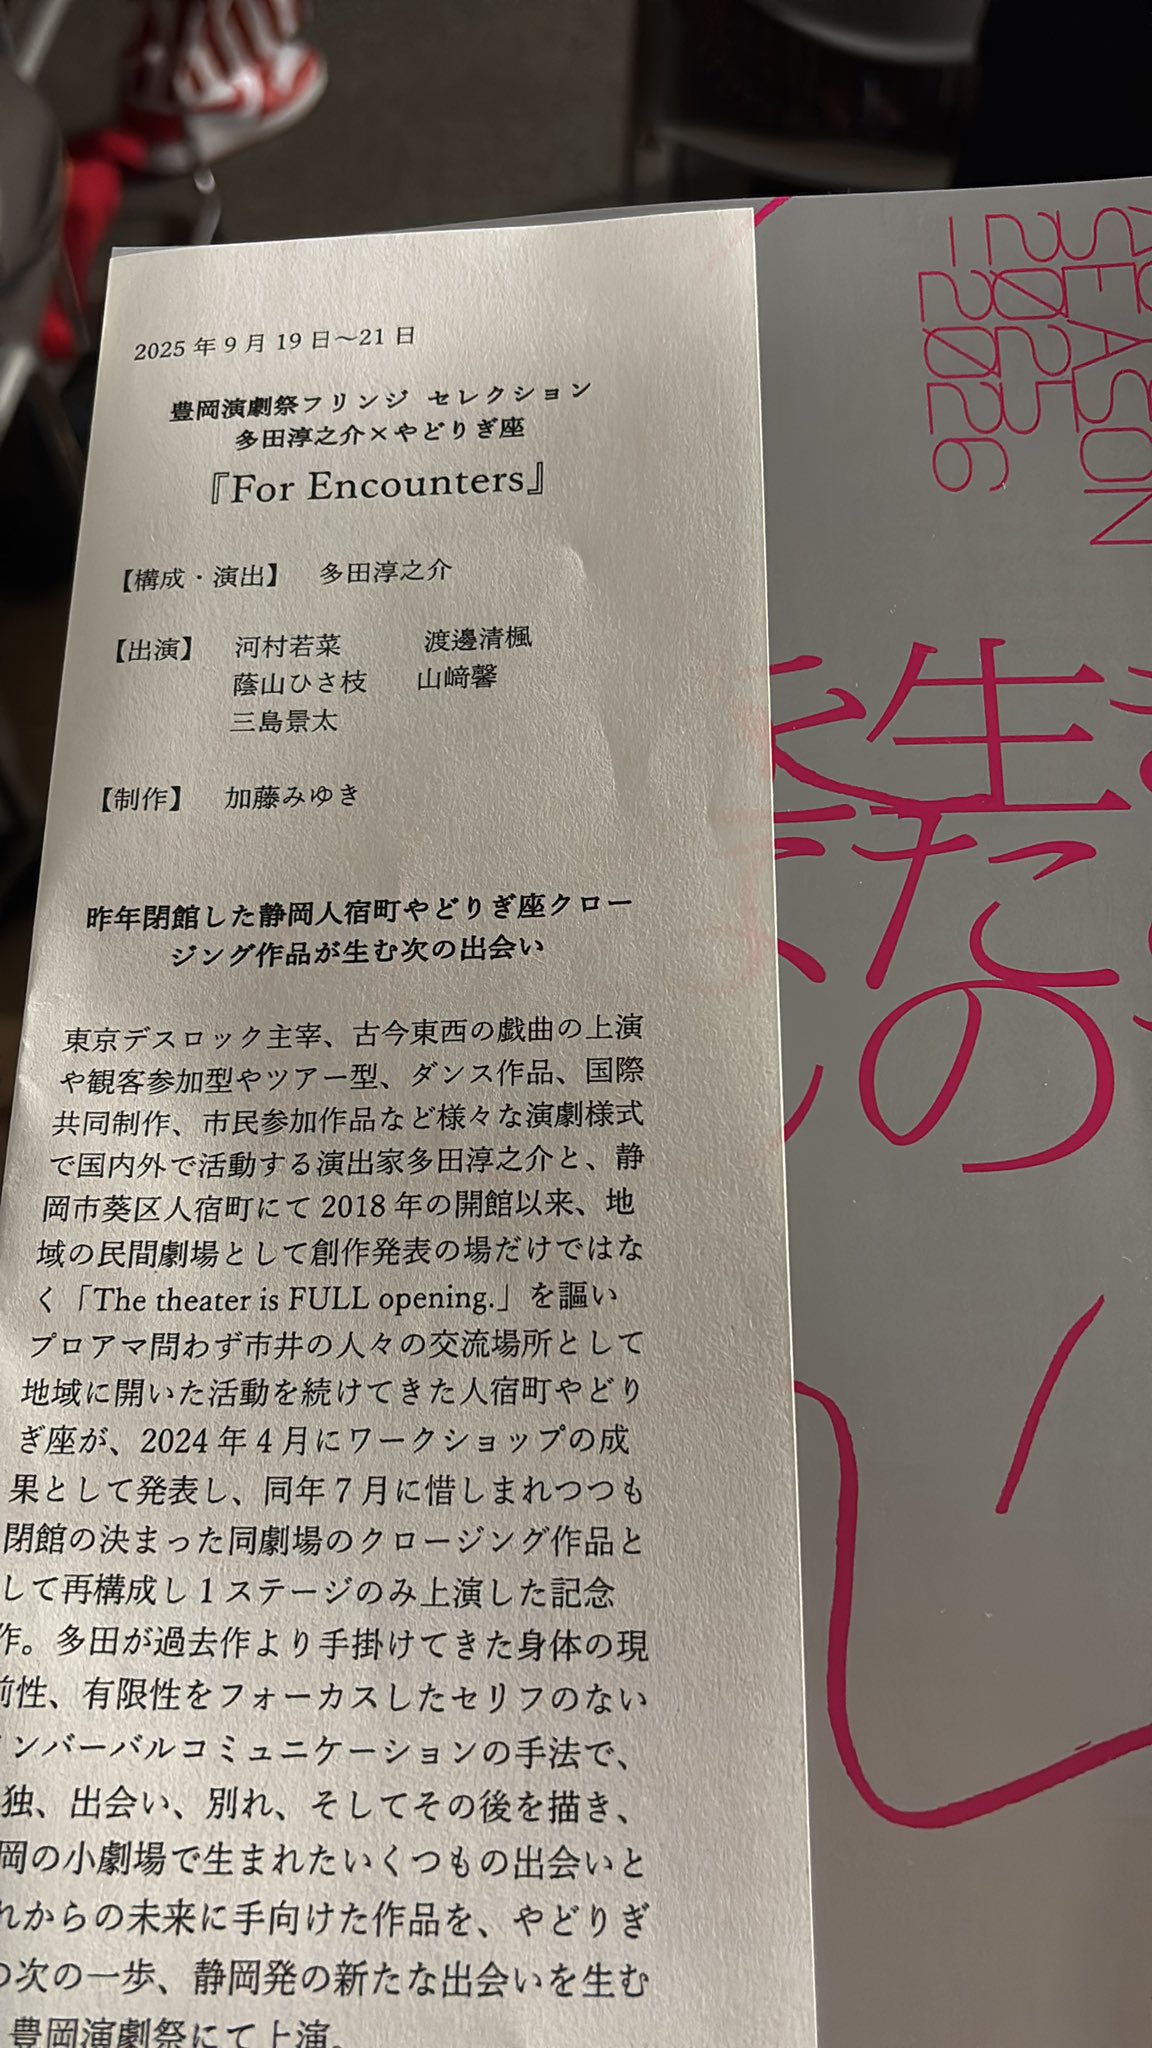 2025年9月19日〜21日
豊岡演劇祭フリンジ セレクション
多田淳之介×やどりぎ座
『For Encounters』
【構成・演出】 多田淳之介
【出演】 河村若菜 渡邊清楓
蔭山ひさ枝 山﨑馨
三島景太
【制作】 加藤みゆき
昨年閉館した静岡人宿町やどりぎ座クロー
ジング作品が生む次の出会い
東京デスロック主宰、古今東西の戯曲の上演
や観客参加型やツアー型、ダンス作品、国際
共同制作、市民参加作品など様々な演劇様式
で国内外で活動する演出家多田淳之介と、静
岡市葵区人宿町にて2018年の開館以来、地
域の民間劇場として創作発表の場だけではな
く「The theater is FULL opening.」を謳い
プロアマ問わず市井の人々の交流場所として
地域に開いた活動を続けてきた人宿町やどり
ぎ座が、2024年4月にワークショップの成
果として発表し、同年7月に惜しまれつつも
閉館の決まった同劇場のクロージング作品と
して再構成し1ステージのみ上演した記念
作。多田が過去作より手掛けてきた身体の現
前性、有限性をフォーカスしたセリフのない
ンバーバルコミュニケーションの手法で、
独、出会い、別れ、そしてその後を描き、
岡の小劇場で生まれたいくつもの出会いと
れからの未来に手向けた作品を、やどりぎ
の次の一歩、静岡発の新たな出会いを生む
豊岡演劇祭にて上演。
SEASON
2025
-2026
生
たの